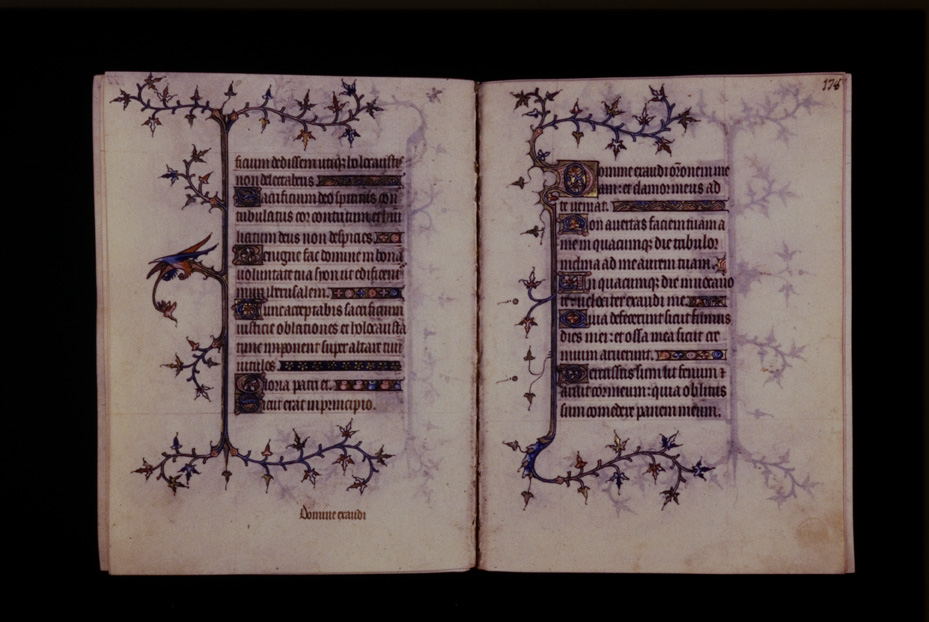 ficium dedissem utiqz holocaustis
non delectaberis
Sacrificium deo spiritus con
tribulatus cor contritum et hu
liatum deus non despicies
Benigne fac domine in bona
voluntate tua syon ut edificent
muri iherusalem.
Tunc acceptabis sacrificium
iusticie oblationes et holocausta
tunc imponent super altare tuu
vitulos
Gloria patri et.
Sicut erat in principio.
Domine exaudi
178
Domine exaudi oronem me
am: et clamor meus ad
te veniat.
Non avertas faciem tuam a
me in quacumqz die tribulor
inclina ad me aurem tuam.
In quacumqz die invocavero
te velociter exaudi me.
Quia defecerunt sicut fumus
dies mei: et ossa mea sicut cre
mium aruerunt.
Percussus sum ut fenum et
aruit cor meum: quia oblitus
sum comedere panem meum.